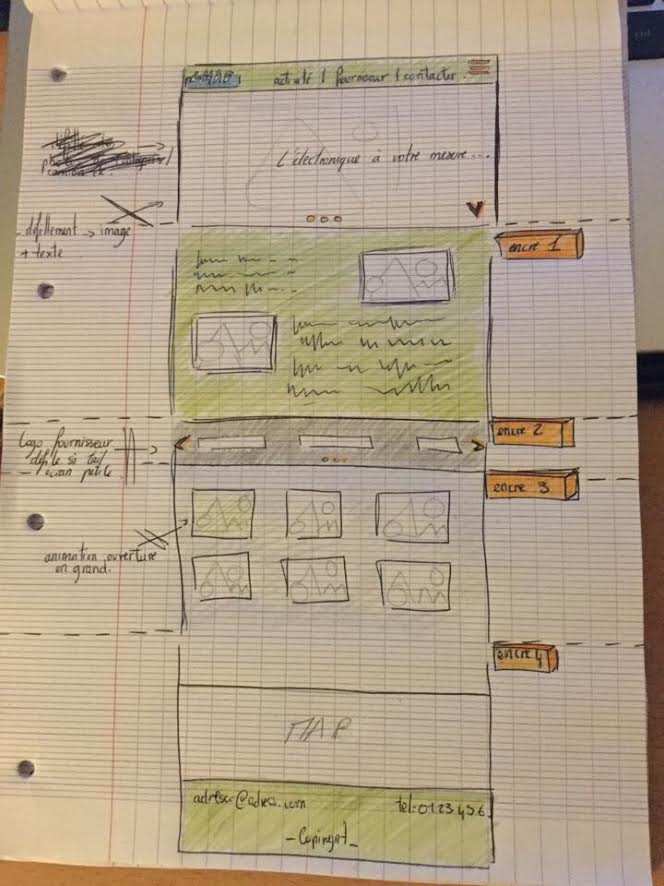 activité | fournisseur | contacter.
L'électronique à votre mesure...
défillement → image
+ texte
encre 1
Logo fournisseur
défile si tail
écran petite
encre 2
encre 3
animation ouverture
en grand.
encre 4
MAP
adresse@adress.com
tel: 0123456.
- Copiright -